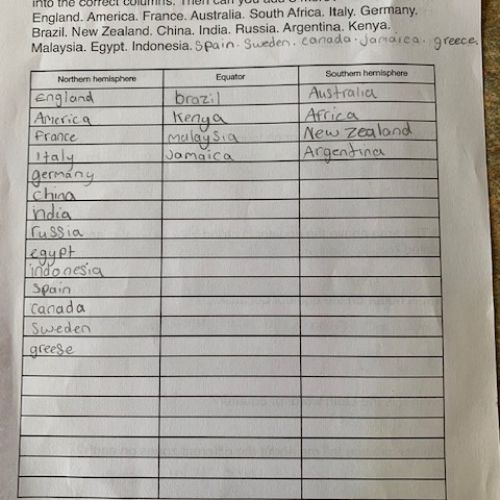 into the correct columns. Then can you add 5 more?
England. America. France. Australia. South Africa. Italy. Germany.
Brazil. New Zealand. China. India. Russia. Argentina. Kenya.
Malaysia. Egypt. Indonesia. Spain. Sweden. canada. Jamaica. greece.
Northern hemisphere Equator Southern hemisphere
England brazil Australia
America Kenya Africa
France malaysia New Zealand
Italy Jamaica Argentina
germany
china
india
russia
egypt
indonesia
Spain
canada
Sweden
greese